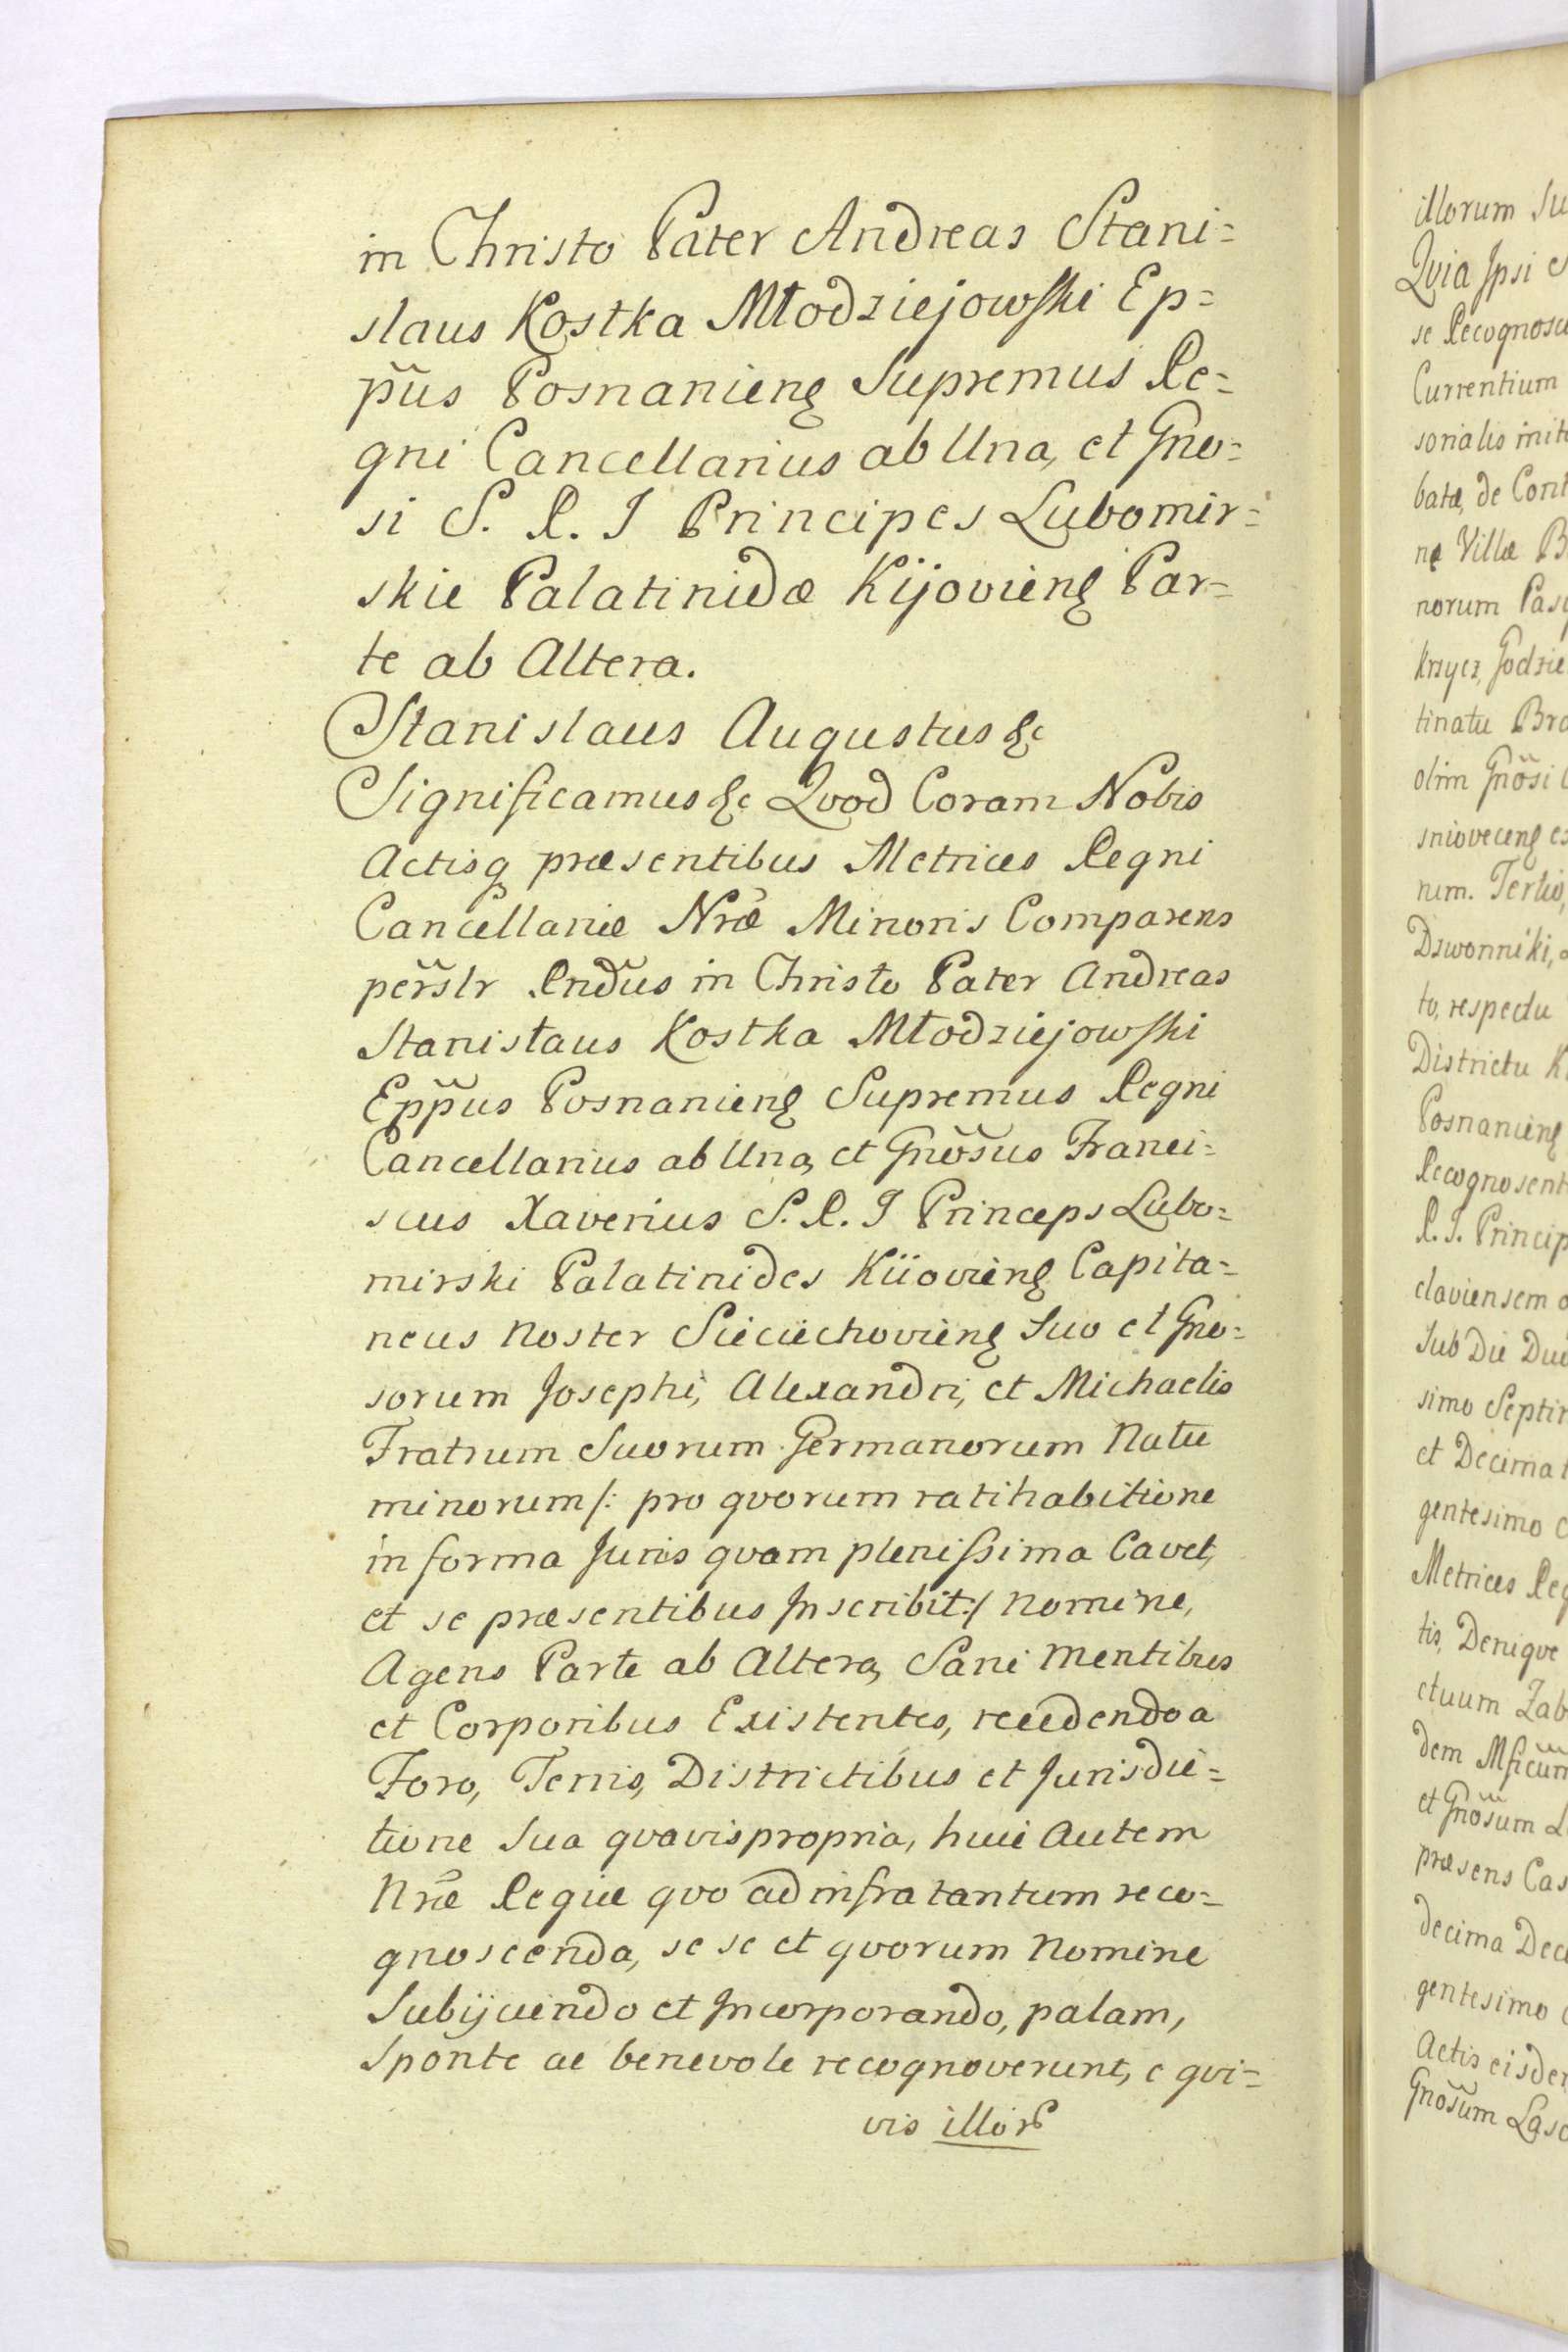 in Christo Pater Andreas Stani=
slaus Kostka Młodziejowski Ep=
pũs Posnanieng Supremus Re=
gni Cancellarius ab Una, et Gno=
si S. R. I Principes Lubomir=
skie Palatinidæ Kijovieng Par=
te ab Altera.
Stanislaus Augustus &c
Significamus &c Qvod Coram Nobis
Actisq præsentibus Metrices Regni
Cancellariæ Nræ Minoris Comparens
per̃slr Rndũs in Christo Pater Andreas
Stanisłaus Kostka Młodziejowski
Epp̃us Posnanieng Supremus Regni
Cancellarius ab Una, et Gnõsus Franci=
scus Xaverius S. R. I Princeps Lubo=
mirski Palatinides Kiiovieng Capita=
neus noster Sieciechovieng Suo et Gno=
sorum Josephi, Alexandri, et Michaelis
Fratrum Suorum Germanorum Natu
minorum /: pro qvorum ratihabitione
in forma Juris qvam plenissima Cavet,
et se præsentibus Inscribit :/ nomine,
Agens Parte ab Altera, Sani mentibus
et Corporibus Existentes, recedendo a
Foro, Terris, Districtibus et Jurisdic=
tione Sua qvavis propria, huic autem
Nræ Regiæ qvo ad infra tantum reco=
gnoscenda, se se et qvorum nomine
Subijciendo et Incorporando, palam,
Sponte ac benevole recognoverunt, e qvi=
vis illor
illorum Su
Qvia Ipsi
se Recognosc
Currentium
sorialis init
batæ, de Cont
næ Villæ B
norum Pas
krzycz, Godzie
tinatu Bra
olim Gnõsi
snioveceng es
rum. Tertio,
Dzwonniki,
to, respectu
Districtu K
Posnanieng
Recognosent
R. I. Princip
claviensem
Sub Die Du
simo Septi
et Decima
gentesimo
Metrices Reg
tis, Deniqve
ctuum Zab
dem Mficum
et Gnõsum L
præsens Cas
decima Dec
gentesimo
Actis eisde
Gnõsum Las